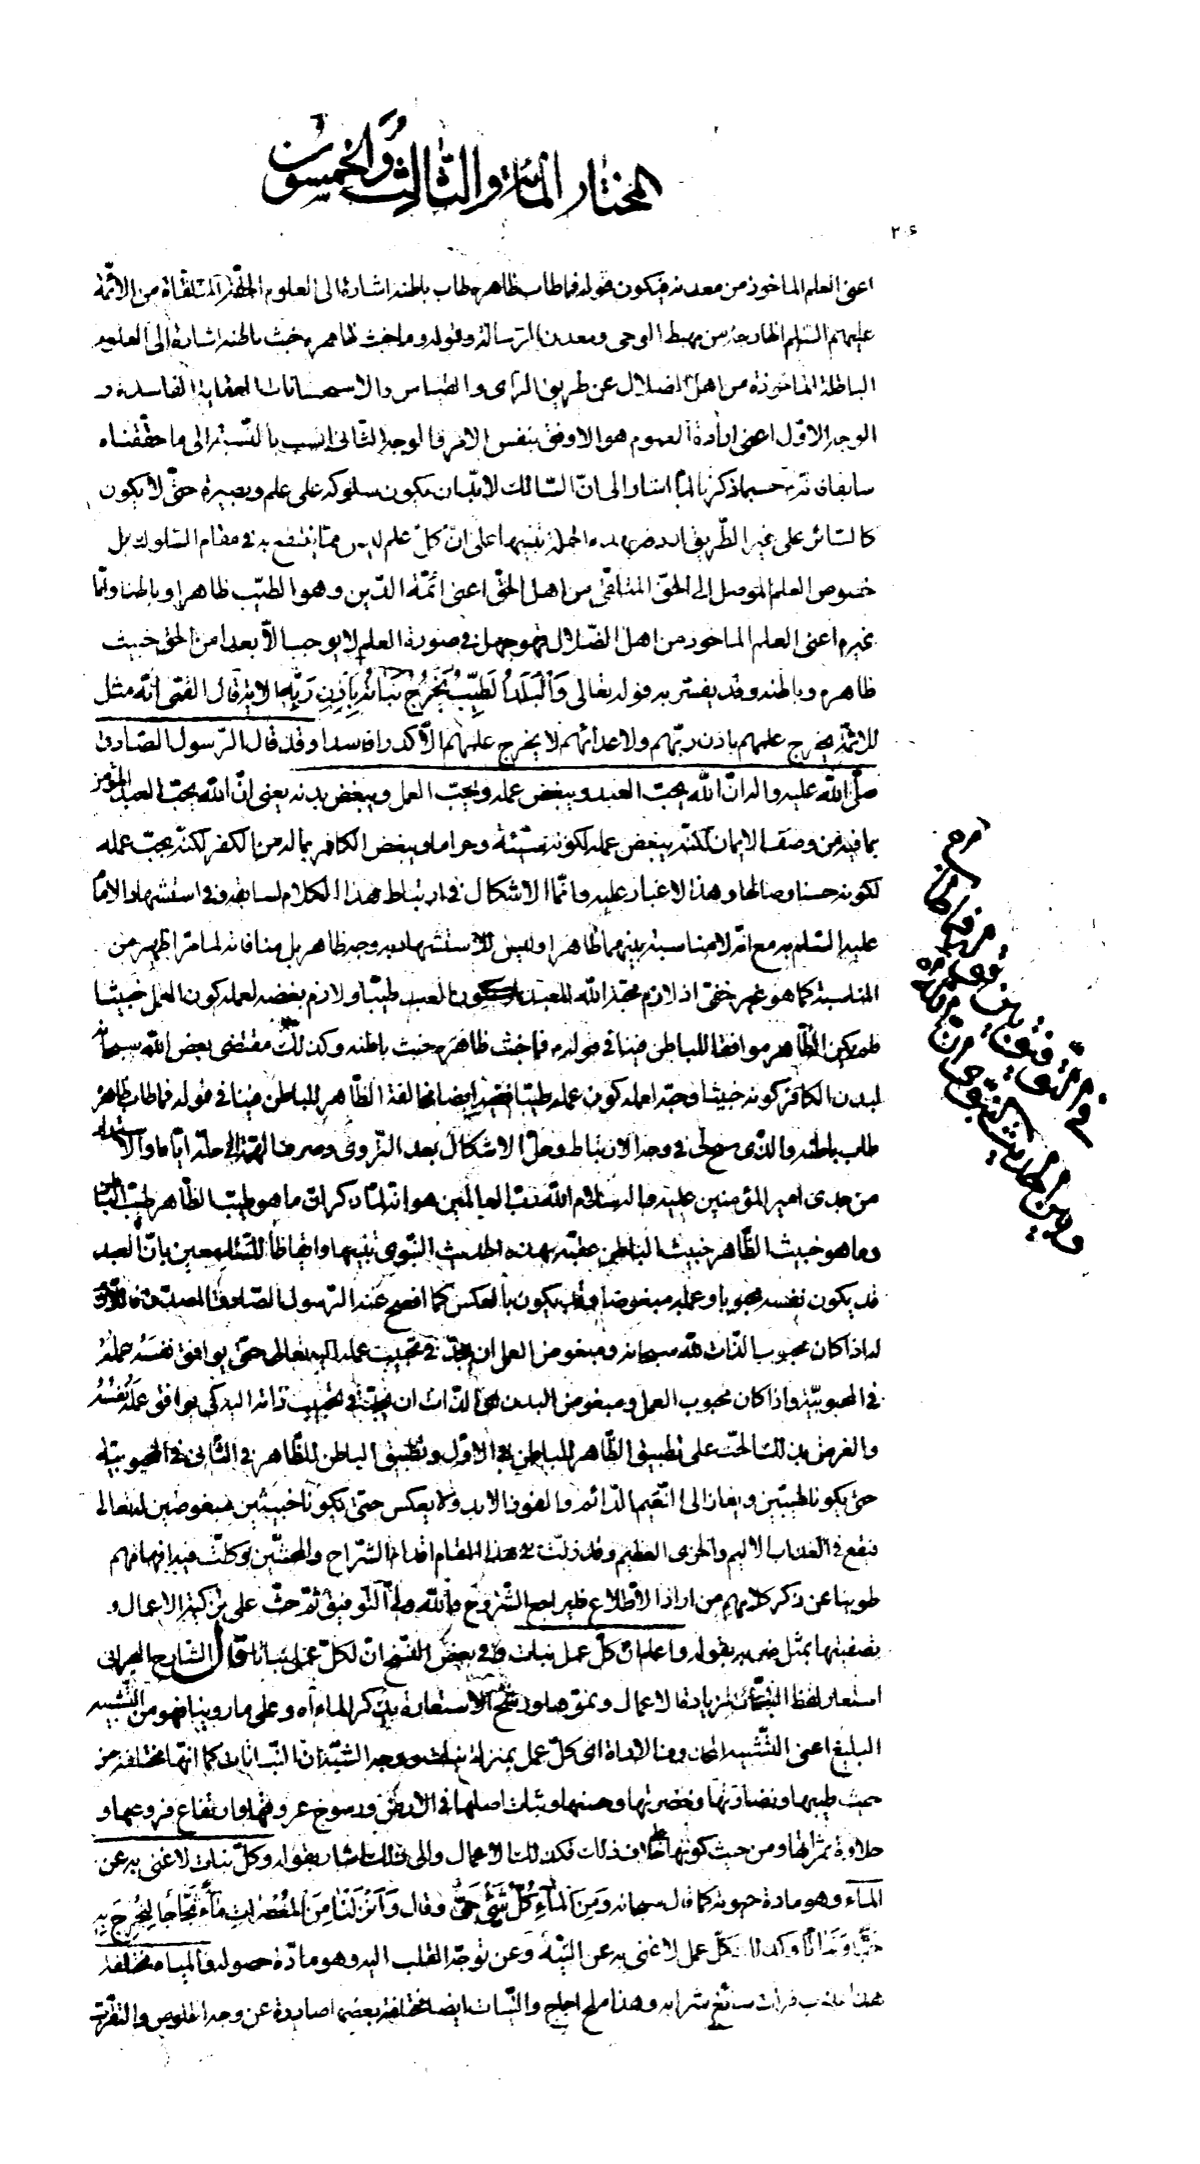 المختار المائة والثالث والخمسون
٢٠٤
اعنى العلم الماخوذ من معدنه فيكون قوله فما طاب ظاهره طاب باطنه اشارة الى العلوم الحقة المتلقاة من الائمّة
عليهم السّلم الخارجة من مهبط الوحى ومعدن الرّسالة وقوله وما خبث ظاهره خبث باطنه اشارة الى العلوم
الباطلة الماخوذة من اهل الضلال عن طريق الرّأى والقياس والاستحسانات العقلية الفاسدة و
الوجه الاوّل اعنى ارادة العموم هو الاوفق بنفس الامر فالوجه الثّانى انسب بالنّسبة الى ما حقّقناه
سابقا فانّه حسبما ذكرنا لمّا اشار الى انّ السّالك لابدّ ان يكون سلوكه على علم وبصيرة حتّى لا يكون
كالسّائر على غير الطّريق اردفه بهذه الجملة تنبيها على انّ كلّ علم ليس ممّا ينتفع به فى مقام السّلوك بل
خصوص العلم الموصل إلى الحقّ المتلقّى من اهل الحقّ اعنى ائمّة الدّين وهو الطّيّب ظاهرا وباطنا وامّا
غيره اعنى العلم الماخوذ من اهل الضّلال فهو جهل فى صورة العلم لا يوجب الّا بعدا من الحق خبيث
ظاهره وباطنه وقد يفسّر به قوله تعالى وَالْبَلَدُ الطَّيِّبُ يَخْرُجُ نَبَاتُهُ بِاِذْنِ رَبِّهِ الاية قال القمّى انّه مثل
للائمّة يخرج علمهم باذن ربّهم ولاعدائهم لا يخرج علمهم الّا كدرا فاسدا وقد قال الرّسول الصّادق
صلّى اللّه عليه واله انّ اللّه يحبّ العبد ويبغض عمله ويحبّ العمل ويبغض بدنه يعنى انّ اللّه يحبّ العبد المؤمن
بما فيه من وصف الايمان لكنّه يبغض عمله لكونه سيّئة وحراما ويبغض الكافر بماله من الكفر لكنّه يحبّ عمله
لكونه حسنا وصالحا وهذا لا غبار عليه وانّما الاشكال فى ارتباط هذا الكلام لسابقه وفى استشهاد الامام
عليه السّلم به مع انّه لا مناسبة بينهما ظاهرا وليس للاستشهاد به وجه ظاهر بل منافاته لما مرّ اظهر من
المناسبة كما هو غير خفىّ اذ لازم محبّة اللّه للعبد كون العبد طيّبا ولازم بغضه لعمله كون العمل خبيثا
فلم يكن الظّاهر موافقا للباطن فينافى قوله فما خبث ظاهره خبث باطنه وكذلك مقتضى بغض اللّه سبحانه
لبدن الكافر كونه خبيثا وحبّه لعمله كون عمله طيّبا ففيه ايضا مخالفة الظّاهر للباطن فينافى قوله فما طاب ظاهره
طاب باطنه والّذى سنح لى فى وجه الارتباط وحلّ الاشكال بعد التّروّى وصرف الهمّة الى حلّه ايّاما والاستمداد
من جدّى امير المؤمنين عليه سلام اللّه ربّ العالمين هو انّه لمّا ذكر انّ ما هو طيّب الظّاهر طيّب الباطن
وما هو خبيث الظّاهر خبيث الباطن عقّبه بهذه الحديث النّبوى تنبيها وايقاظا للسّامعين بانّ العبد
قد يكون نفسه محبوبا وعمله مبغوضا وقد يكون بالعكس كما افصح عنه الرّسول الصّادق المصدّق فاللّازم
له اذا كان محبوب الذّات للّه سبحانه ومبغوض العمل ان يجدّ فى تحبيب عمله اليه تعالى حتى يوافق نفسه عمله
فى المحبوبيّة واذا كان محبوب العمل ومبغوض البدن اى الذّات ان يجدّ فى تحبيب ذاته اليه كى يوافق عمله نفسه
والغرض بذلك الحثّ على تطبيق الظّاهر للباطن فى الاوّل وتطبيق الباطن للظّاهر فى الثّانى فى المحبوبيّة
حتى يكونا طيّبين ويفاز الى النّعيم الدّائم والفوز الابد ولا يعكس حتى يكونا خبيثين مبغوضين له تعالى
فيقع فى العذاب الاليم والخزى العظيم وقد زلّت فى هذا المقام اقدام الشّراح والمحشّين وكلّت فيه افهامهم
طوينا عن ذكر كلامهم من اراد الاطّلاع فليراجع الشّروح واللّه ولىّ التّوفيق ثمّ حثّ على تزكية الاعمال و
تصفيتها بمثل ضربه بقوله واعلم انّ كلّ عمل نبات وفى بعض النّسخ انّ لكلّ عمل نباتا قال الشّارح البحرانى
استعار لفظ النّبات لزيادة الاعمال ونموّها ورشّح الاستعارة بذكر الماء اه وعلى ما روينا فهو من التّشبيه
البليغ اعنى التّشبيه المحذوف الاداة اى كلّ عمل بمنزلة نبات ووجه الشّبه انّ النّباتات كما انّها مختلفة من
حيث طيبها ونضارتها وخضرتها وحسنها وثبات اصلها فى الارض ورسوخ عروقها وارتفاع فروعها و
حلاوة ثمراتها ومن حيث كونها خلاف ذلك فكذلك الاعمال والى ذلك اشار بقوله وكلّ نبات لا غنى به عن
الماء وهو مادة حيوته كما قال سبحانه وَمِنَ الْمَاءِ كُلُّ شَىْءٍ حَىٍّ وقال وَاَنْزَلْنَا مِنَ الْمُعْصِرَاتِ مَاءً ثَجَّاجًا لِنُخْرِجَ بِهِ
حَبًّا وَنَبَاتًا وكذلك كلّ عمل لا غنى به عن النّيّة وعن توجّه القلب اليه وهو مادّة حصوله والمياه مختلفة
هذا عذب فرات سائغ شرابه وهذا ملح اجاج والنّيّات ايضا مختلفة بعضها صادرة عن وجه الخلوص والتقرّب
فى التوفيق بين قوله فما طاب ظاهره
وبين الحديث النبوى انّ اللّه